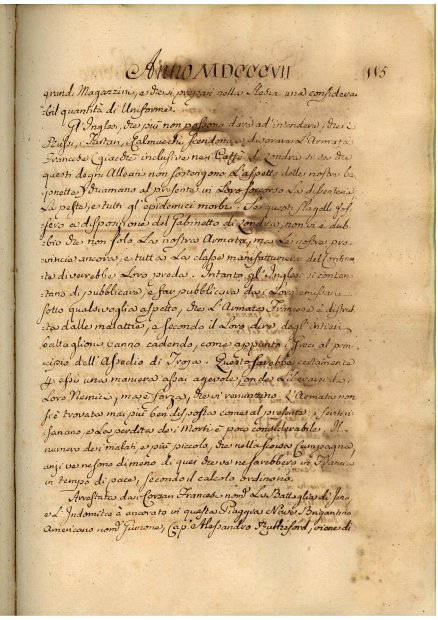 Anno MDCCCVII 115
grandi Magazzini, e che si preparan nella Slesia una considera-
bil quantità di Uniforme.
Gl'Inglesi, che più non possono dare ad intendere, che i
Russi, i Tartari, Calmucchi, scendono a divorare l'Armata
Francese (giacchè inclusive nei Caffè di Londra si sa che
questi degni Alleati non sostengono l'aspetto delle nostre ba-
jonette) chiamano al presente in Loro soccorso La dissenteria,
La peste, e tutti gl'epidemici morbi. Se questi flagelli fos-
sero a disposizione del Gabinetto di Londra, non vi è dub-
bio che non solo La nostra Armata, ma Le nostre pro-
vincie ancora, e tutta La classe manifatturiera del Continen-
te diverrebbe Loro preda. Intanto gl'Inglesi si conten-
tano di pubblicare, e far pubblicare da i Loro emissari
sotto qualsivoglia aspetto, che L'Armata Francese è distrut-
ta dalle malattie, a secondo il Loro dire degl'intieri
battaglioni vanno cadendo, come appunto i Greci al prin-
cipio dell'Assedio di Troja. Questa sarebbe certamente
per essi una maniera assai agevole, onde Liberarsi da
Loro Nemici, ma è forza, che vi renunzino. L'Armata non
si è trovata mai più ben disposta come al presente, i feriti ri-
sanano, e La perdita dei Morti è poco considerabile. Il
numero dei malati è più piccolo, che nella scorsa Campagna,
anzi ve ne sono di meno di quei che ve ne sarebbero in Francia
in tempo di pace, secondo il calcolo ordinario.
Arrestato da i Corsari Francesi nom. La Battaglia di Jena,
e L'Indomito è ancorato in questa Piaggia Nave Brigantino
Americano nom. Cap. Alessandro Rutherford, viene di